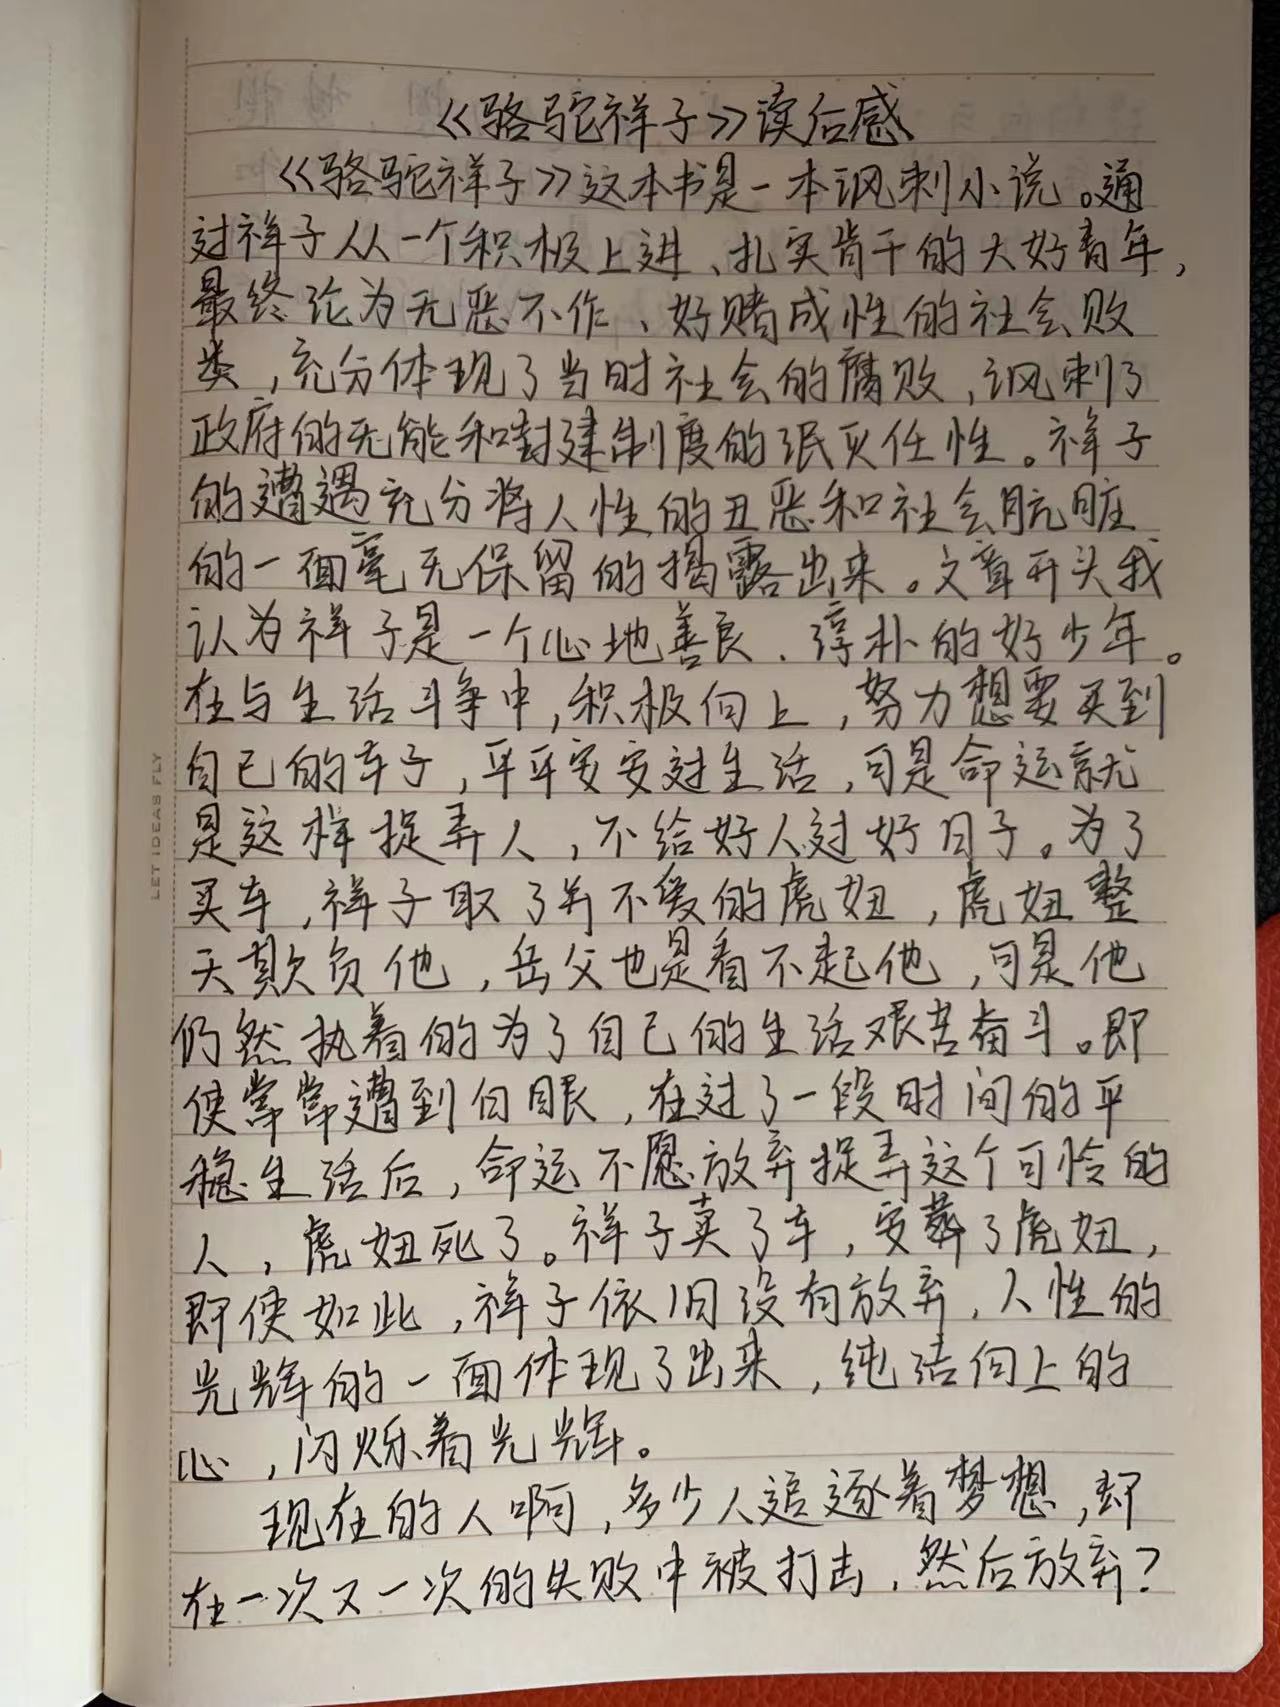 《骆驼祥子》读后感
《骆驼祥子》这本书是一本讽刺小说。通
过祥子从一个积极上进、扎实肯干的大好青年，
最终论为无恶不作、好赌成性的社会败
类，充分体现了当时社会的腐败，讽刺了
政府的无能和封建制度的泯灭任性。祥子
的遭遇充分将人性的丑恶和社会肮脏
的一面毫无保留的揭露出来。文章开头我
认为祥子是一个心地善良、淳朴的好少年。
在与生活斗争中，积极向上，努力想要买到
自己的车子，平平安安过生活，可是命运就
是这样捉弄人，不给好人过好日子。为了
买车，祥子取了并不爱的虎妞，虎妞整
天欺负他，岳父也是看不起他，可是他
仍然执着的为了自己的生活艰苦奋斗。即
使常常遭到白眼，在过了一段时间的平
稳生活后，命运不愿放弃捉弄这个可怜的
人，虎妞死了。祥子卖了车，安葬了虎妞，
即使如此，祥子依旧没有放弃，人性的
光辉的一面体现了出来，纯洁向上的
心，闪烁着光辉。
现在的人啊，多少人追逐着梦想，却
在一次又一次的失败中被打击，然后放弃？
LET IDEAS FLY